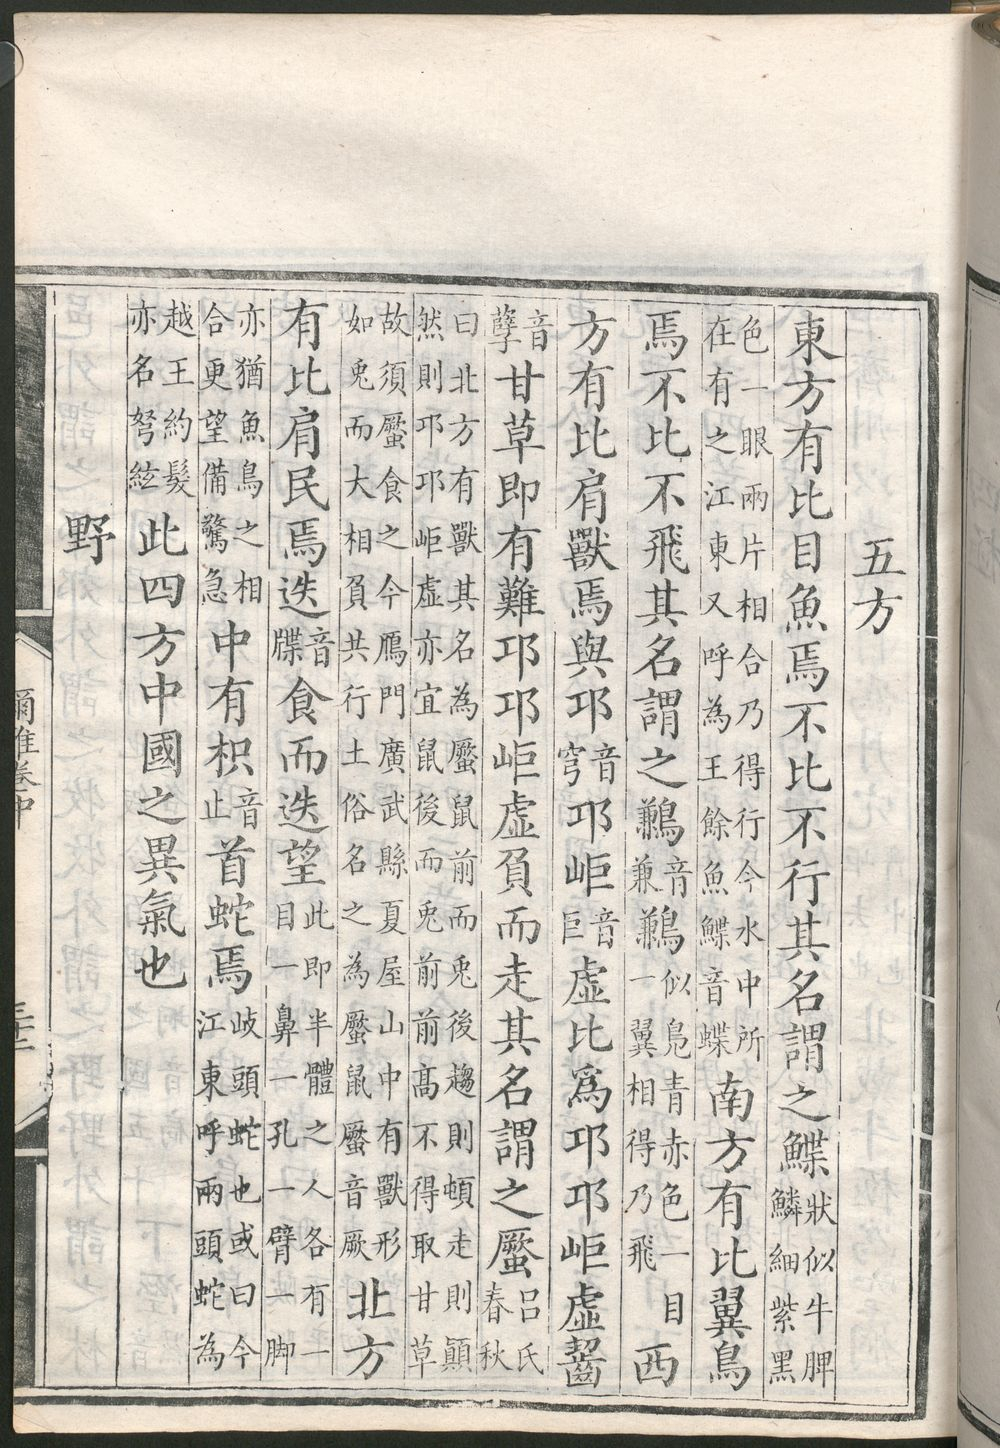 五方
東方有比目魚焉不比不行其名謂之鰈狀似牛脾鱗細紫黑
色一眼兩片相合乃得行今水中所在有之江東又呼為王餘魚鰈音蝶南方有比翼鳥
焉不比不飛其名謂之鶼音兼鶼似鳧青赤色一目一翼相得乃飛西
方有比肩獸焉與邛音穹邛岠音巨虛比為邛邛岠虛齧
音孽甘草即有難邛邛岠虛負而走其名謂之蟨呂氏春秋
曰北方有獸其名為蟨鼠前而兎後趨則頓走則顛然則邛邛岠虛亦宜鼠後而兎前前高不得取甘草
故須蟨食之今鴈門廣武縣夏屋山中有獸形如兎而大相負共行土俗名之為蟨鼠蟨音厥北方
有比肩民焉迭音牒食而迭望此即半體之人各有一目一鼻一孔一臂一脚
亦猶魚鳥之相合更望備驚急中有枳音止首蛇焉岐頭蛇也或曰今江東呼兩頭蛇為
越王約髮亦名弩絃此四方中國之異氣也
野
爾雅卷中